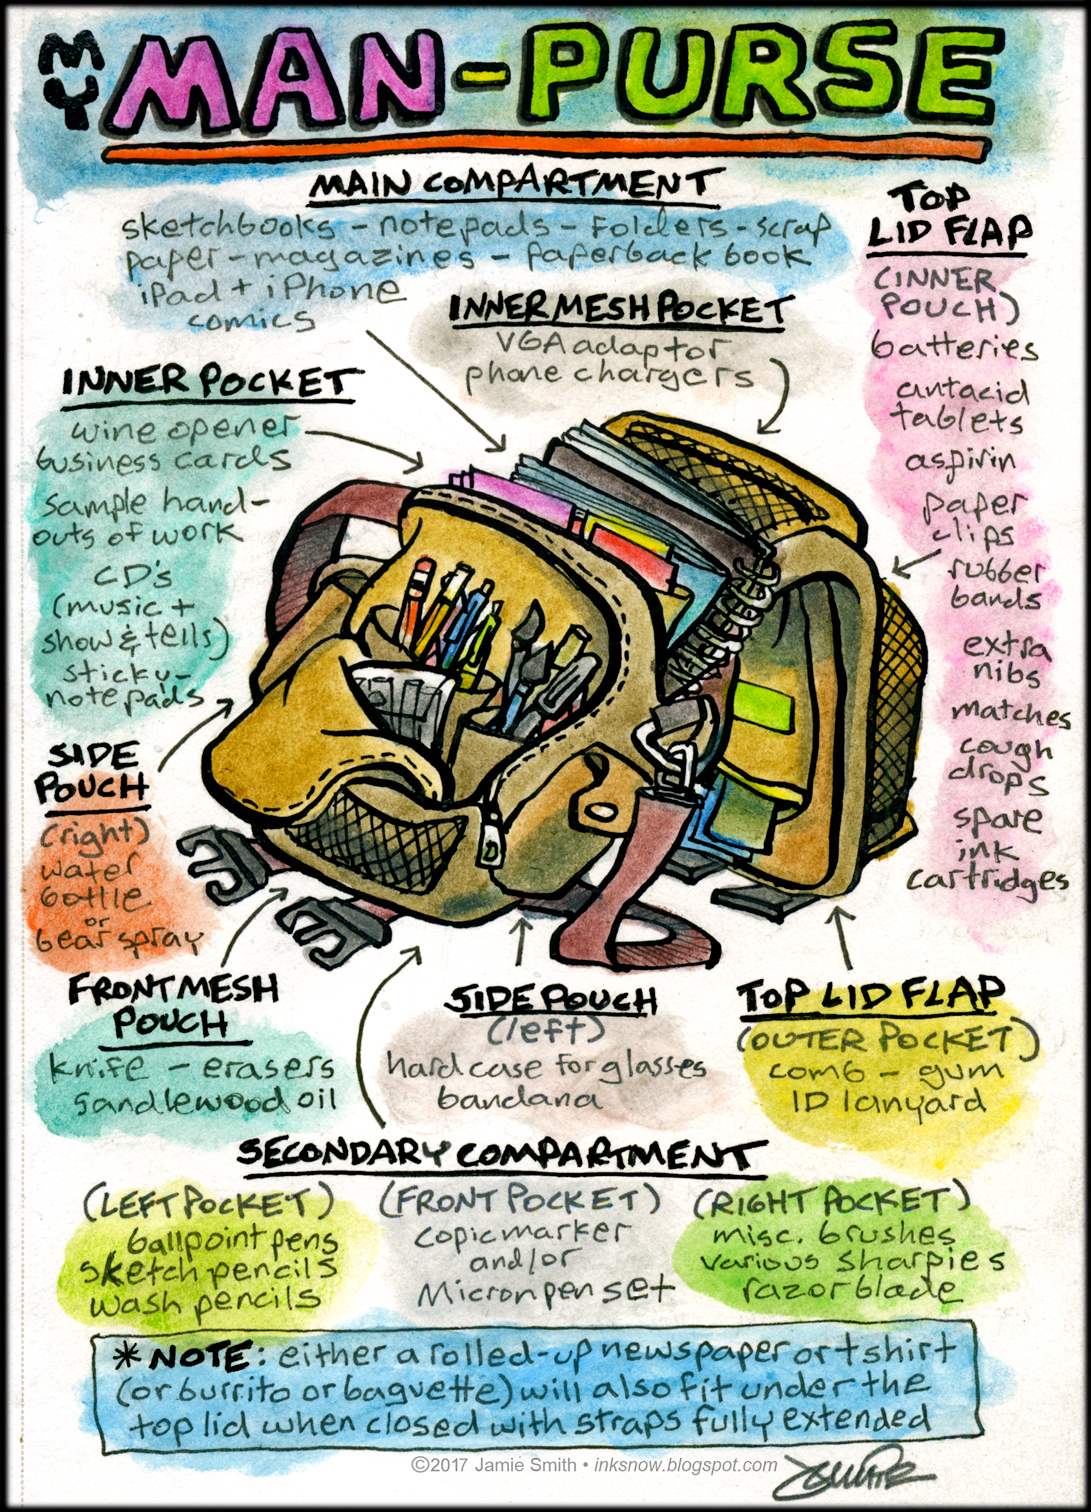 MY MAN-PURSE
MAIN COMPARTMENT
sketchbooks - notepads - folders - scrap
paper - magazines - paperback book
iPad + iPhone
comics
TOP
LID FLAP
(INNER
POUCH)
batteries
antacid
tablets
aspirin
paper
clips
rubber
bands
extra
nibs
matches
cough
drops
spare
ink
cartridges
INNER MESH POCKET
VGA adaptor
phone chargers
INNER POCKET
wine opener
business cards
sample hand-
outs of work
CD's
(music +
show & tells)
sticky-
note pads
SIDE
POUCH
(right)
water
bottle
or
bear spray
FRONT MESH
POUCH
knife - erasers
sandlewood oil
SIDE POUCH
(left)
hard case for glasses
bandana
TOP LID FLAP
(OUTER POCKET)
comb - gum
ID lanyard
SECONDARY COMPARTMENT
(LEFT POCKET)
ballpoint pens
sketch pencils
wash pencils
(FRONT POCKET)
copic marker
and/or
Micron pen set
(RIGHT POCKET)
misc. brushes
various sharpies
razor blade
* NOTE: either a rolled-up newspaper or t shirt
(or burrito or baguette) will also fit under the
top lid when closed with straps fully extended
©2017 Jamie Smith • inksnow.blogspot.com